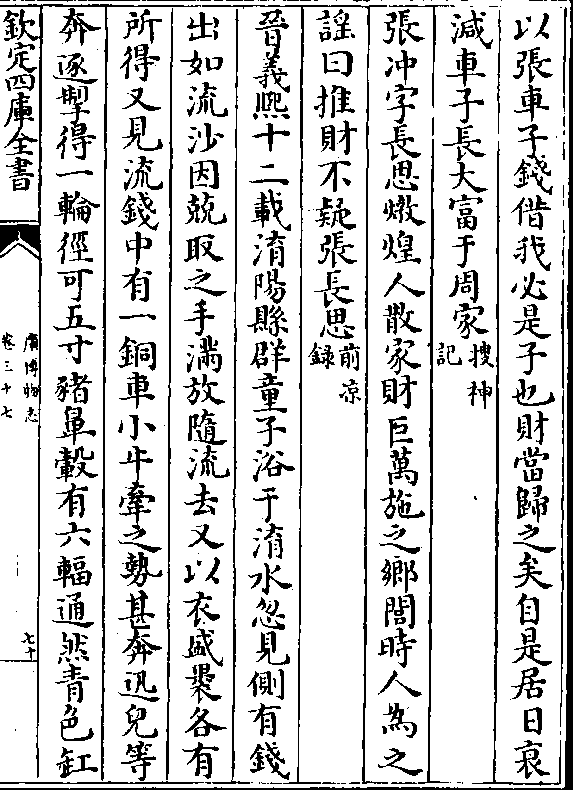 以張車子錢借我必是子也財當歸之矣自是居日衰
減車子長大富于周家搜神記
張冲字長思燉煌人散家財巨萬施之鄉閭時人為之
謡曰推財不疑張長思前凉録
晉義熙十二載淯陽縣群童子浴于淯水忽見側有錢
出如流沙因競取之手滿放隨流去又以衣盛褁各有
所得又見流錢中有一銅車小牛牽之勢甚奔迅兒等
奔逐掣得一輪徑可五寸豬鼻轂有六輻通然青色缸
欽定四庫全書
廣博物志
卷三十七
七十